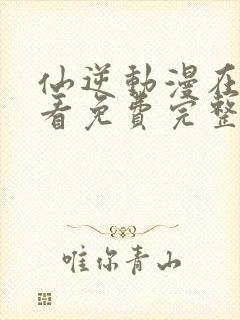 仙逆動漫在
看免費完整
唯你青山